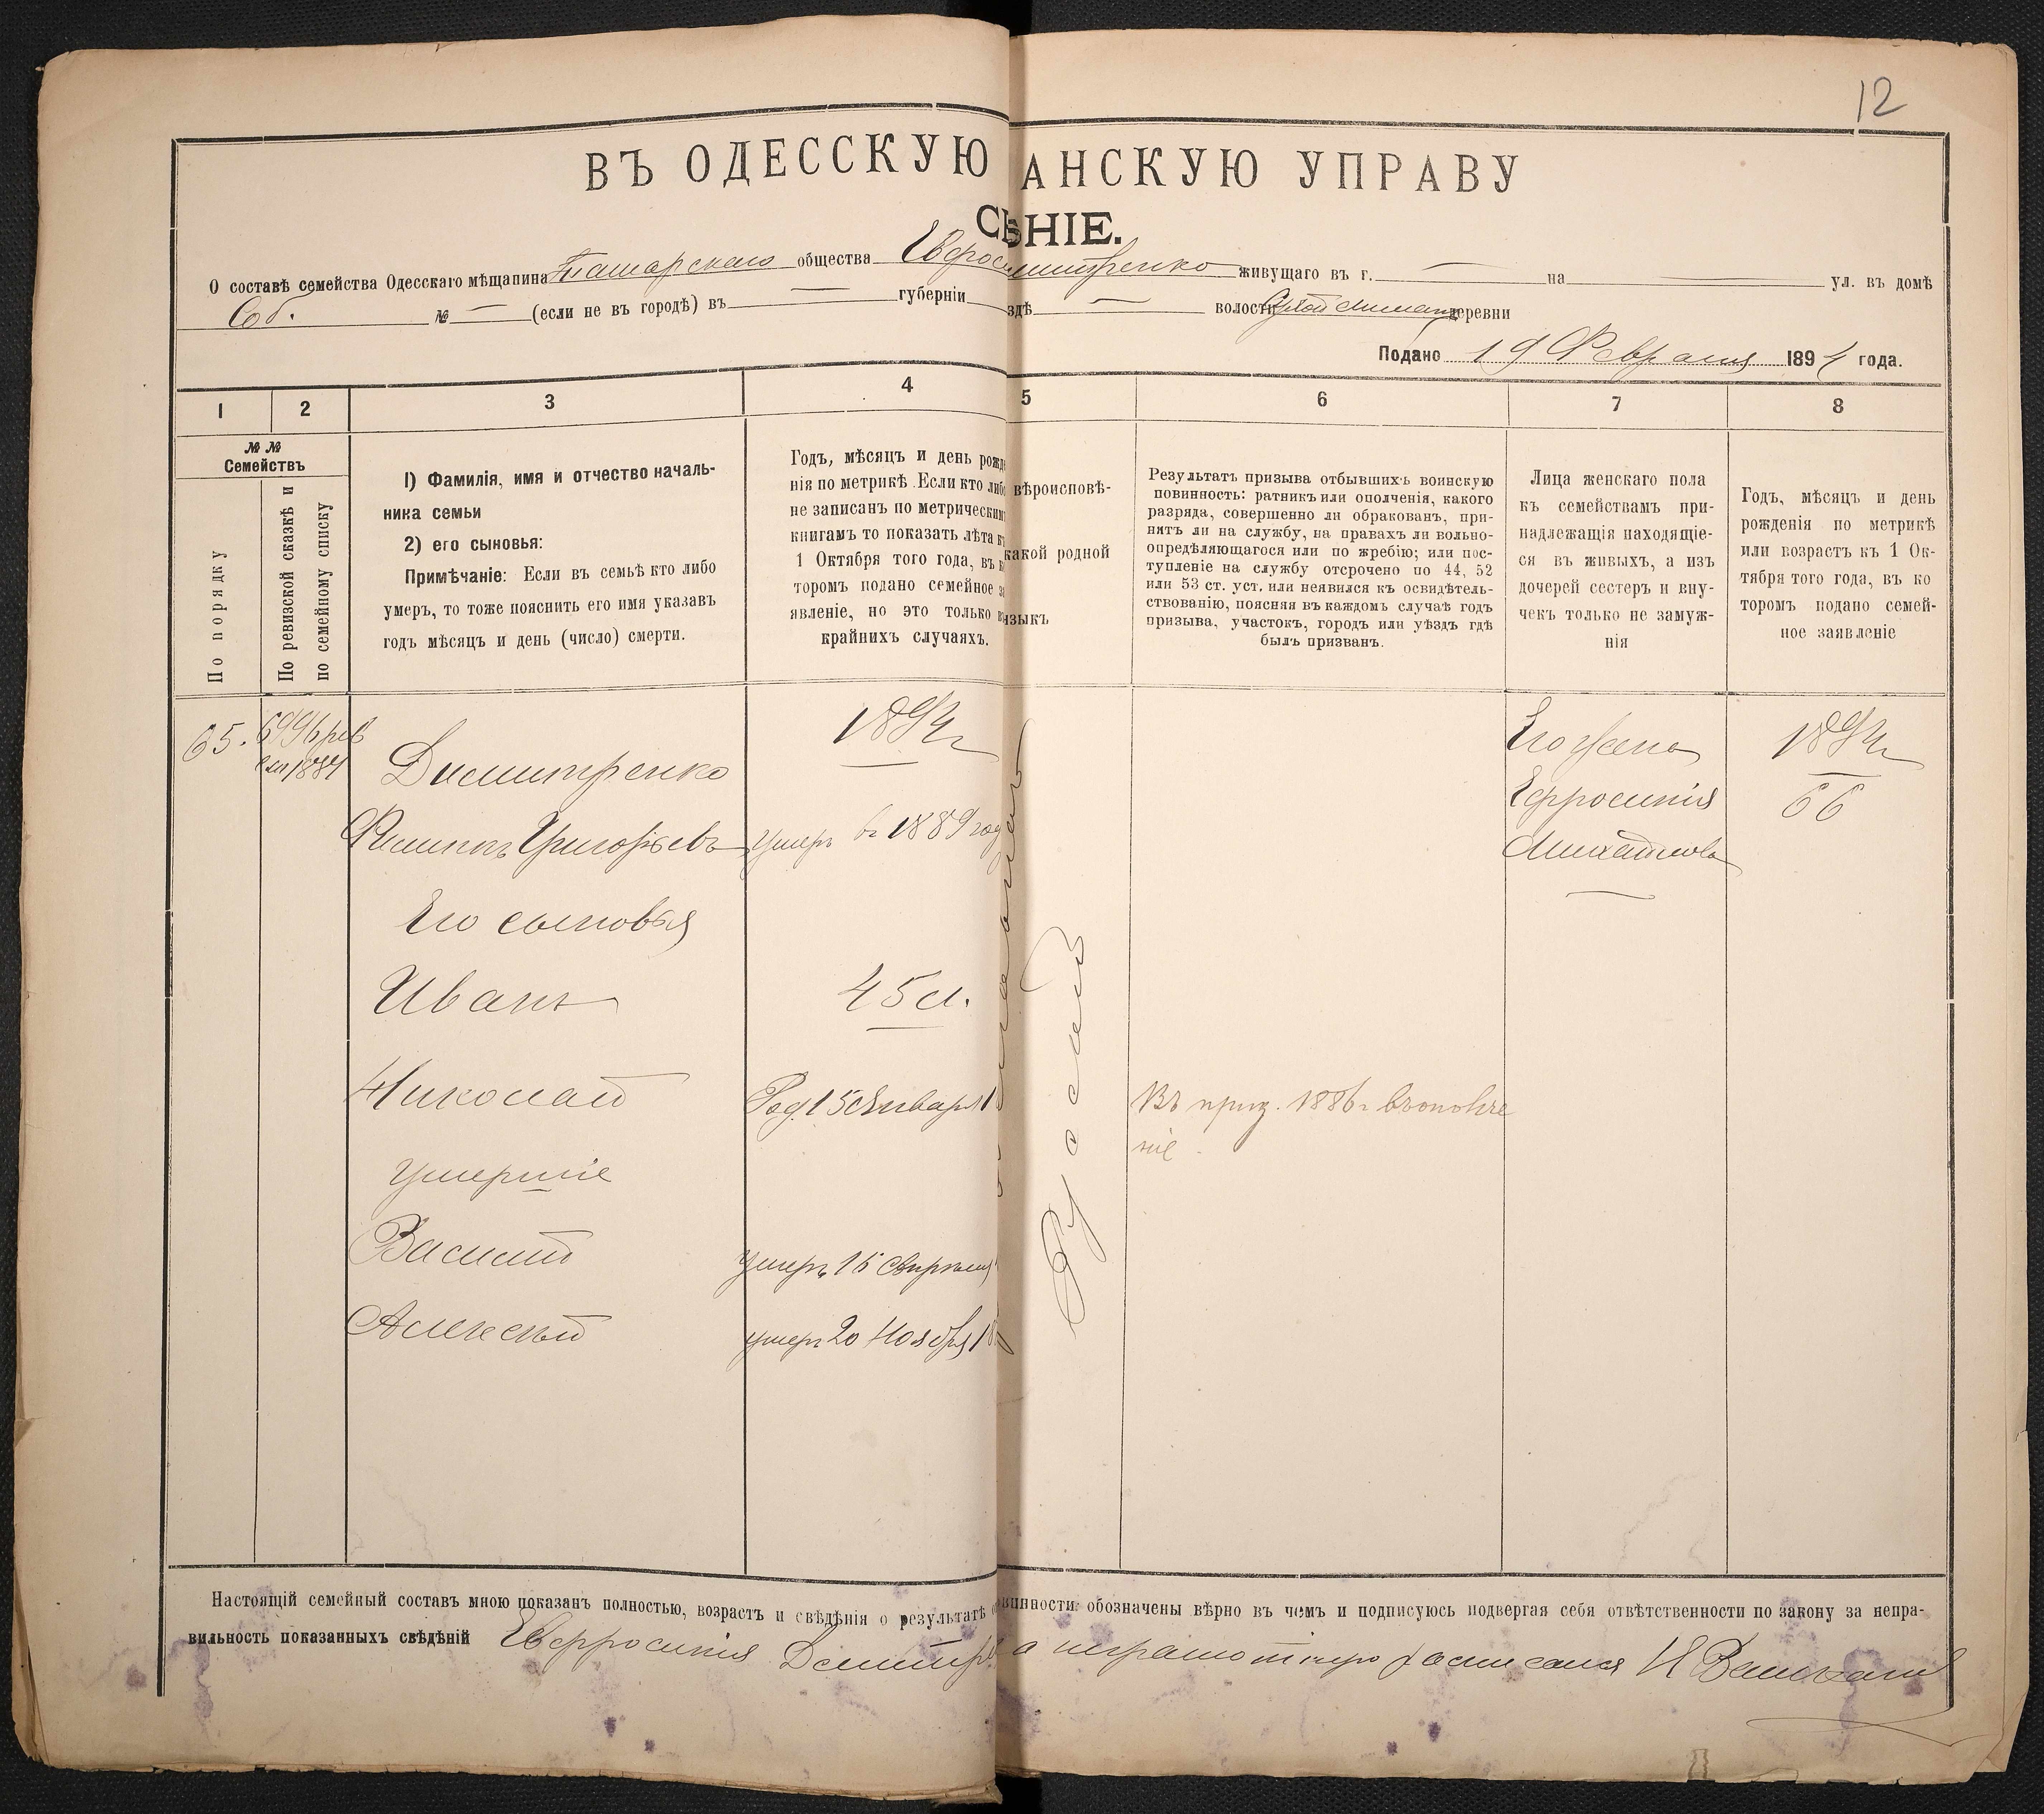 12
ВЪ ОДЕССКУЮ АНСКУЮ УПРАВУ
СѢНІЕ.
О составѣ семейства Одесскаго мѣщанина Татарскаго общества Евфрос митренко живущаго въ г. — на — ул. въ домѣ
Соб. № — (если не въ городѣ) въ — губерніи здѣ — волости Сухой Лиманъ деревни
Подано 19 Февраля 1894 года.
1 2 3 4 5 6 7 8
№ №
Семействъ
По порядку
По ревизской сказкѣ и
по семейному списку
1) Фамилія, имя и отчество началь-
ника семьи
2) его сыновья:
Примѣчаніе: Если въ семьѣ кто либо
умеръ, то тоже пояснить его имя указавъ
годъ мѣсяцъ и день (число) смерти.
Годъ, мѣсяцъ и день рожде
нія по метрикѣ. Если кто либо
не записанъ по метрическим
книгамъ то показать лѣта къ
1 Октября того года, въ ко
торомъ подано семейное за
явленіе, но это только въ
крайнихъ случаяхъ.
вѣроисповѣ-
какой родной
языкъ
Результатъ призыва отбывшихъ воинскую
повинность: ратникъ или ополченія, какого
разряда, совершенно ли обракованъ, при-
нятъ ли на службу, на правахъ ли вольно-
опредѣляющагося или по жребію; или пос-
тупленіе на службу отсрочено по 44, 52
или 53 ст. уст. или неявился къ освидѣтель-
ствованію, поясняя въ каждомъ случаѣ годъ
призыва, участокъ, городъ или уѣздъ гдѣ
былъ призванъ.
Лица женскаго пола
къ семействамъ при-
надлежащія находящіе-
ся въ живыхъ, а изъ
дочерей сестеръ и вну-
чекъ только не замуж-
нія
Годъ, мѣсяцъ и день
рожденія по метрикѣ
или возрастъ къ 1 Ок-
тября того года, въ ко
торомъ подано семей-
ное заявленіе
65. 6996 рев
сп 1884
Димитренко
Филиппъ Григорьевъ
Его сыновья
Иванъ
Николай
умершіе
Василій
Алексѣй
1894 г
умеръ въ 1889 год
45 л.
Род. 15 Января 1
умеръ 15 Апрѣля
умеръ 20 Ноября 18
Русскій
Въ приз. 1886 г въ ополче
ніе
Его жена
Ефросинія
Михайлова
1894 г
66
Настоящій семейный составъ мною показанъ полностью, возрастъ и свѣдѣнія о результатѣ о винности обозначены вѣрно въ чемъ и подписуюсь подвергая себя отвѣтственности по закону за непра-
вильность показанныхъ свѣдѣній Евфросинія Демитр а неграмотную росписался И